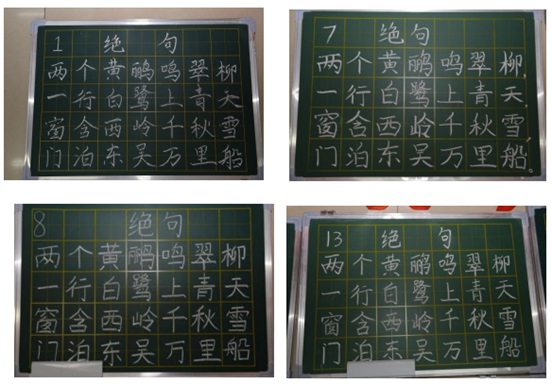 1 绝句
两个黄鹂鸣翠柳
一行白鹭上青天
窗含西岭千秋雪
门泊东吴万里船
7 绝句
两个黄鹂鸣翠柳
一行白鹭上青天
窗含西岭千秋雪
门泊东吴万里船
8 绝句
两个黄鹂鸣翠柳
一行白鹭上青天
窗含西岭千秋雪
门泊东吴万里船
13 绝句
两个黄鹂鸣翠柳
一行白鹭上青天
窗含西岭千秋雪
门泊东吴万里船